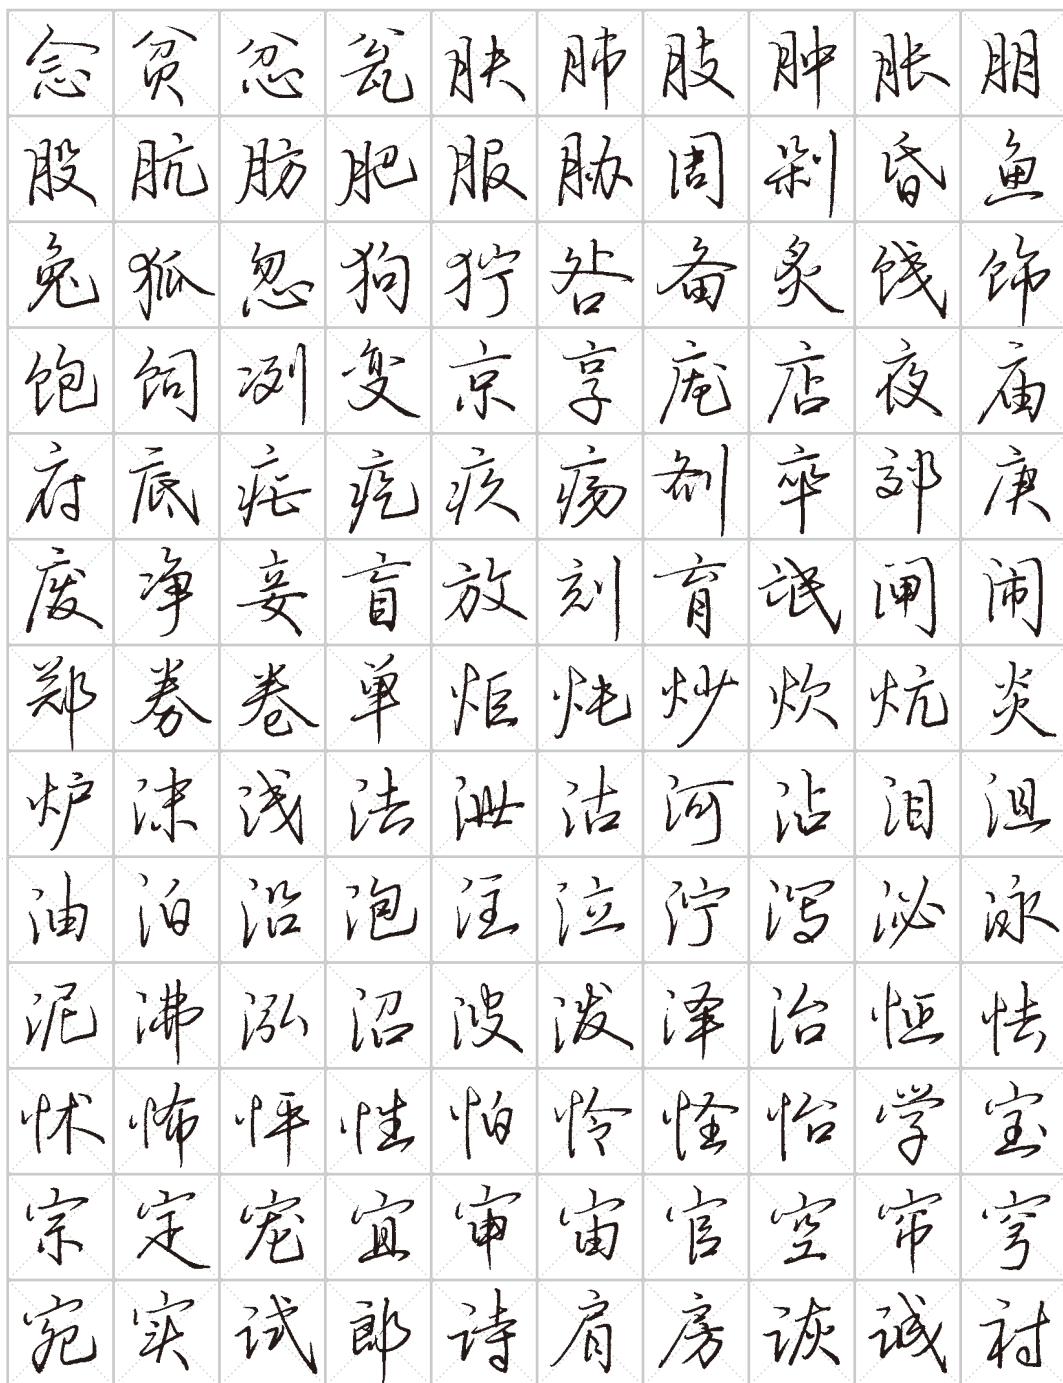 念贫忿瓮肤肺肢肿胀朋
股肮肪肥服胁周剁昏鱼
兔狐忽狗狞咎备炙饯饰
饱饲冽变京享庞店夜庙
府底疟疙疚疡刽卒郊庚
废净妾盲放刻育氓闸闹
郑券卷单炬炖炒炊炕炎
炉沫浅法泄沽河沾泪沮
油泊沿泡注泣泞泻泌泳
泥沸泓沼波泼泽治怔怯
怵怖怦性怕怜怪怡学宝
宗定宠宜审宙官空帘穹
宛实试郎诗肩房诙诚衬